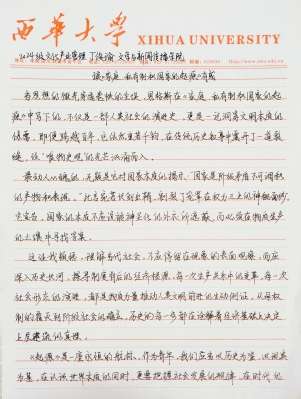 西华大学
XIHUA UNIVERSITY
2024级文化产业管理 丁俊渝 文学与新闻传播学院
读《家庭、私有制和国家的起源》有感
当思想的微光穿透
恩格斯在《家庭、私有制和国家的起
源》中写下的,不仅是一部人类社会的演进史,更是一把洞察文明本质的
即便跨越百年,它依然重若千钧,在传统历史叙事中凿开了一道裂
缝,让“唯物史观”的光芒汹涌而入。
最动人心魄的,无疑是它对国家本质的揭示。“国家是阶级矛盾不可调和
的产物和表现。”此言宛若长剑出鞘,
了笼罩在权力之上的神秘面纱。
它宣告,国家的本质不应该被神圣化的外衣所遮蔽,而必须在物质生产
的土壤中寻找答案。
这让我领悟,理解当代社会,不应停留在现象的表面观察,而应
深入历史长河,探寻制度背后的经济根源。每一次生产关系中的变革,每一次
社会形态的演进,都是物质力量推动人类文明前进的生动例证。从母权
制的
到阶级社会的确立,历史的每一步都在诠释着经济基础决定
上层建筑的真理。
《起源》是一座永恒的航标。作为青年,我们应当以历史为鉴,以
为基,在认识世界本质的同时,更要把握社会发展的规律,在时代的